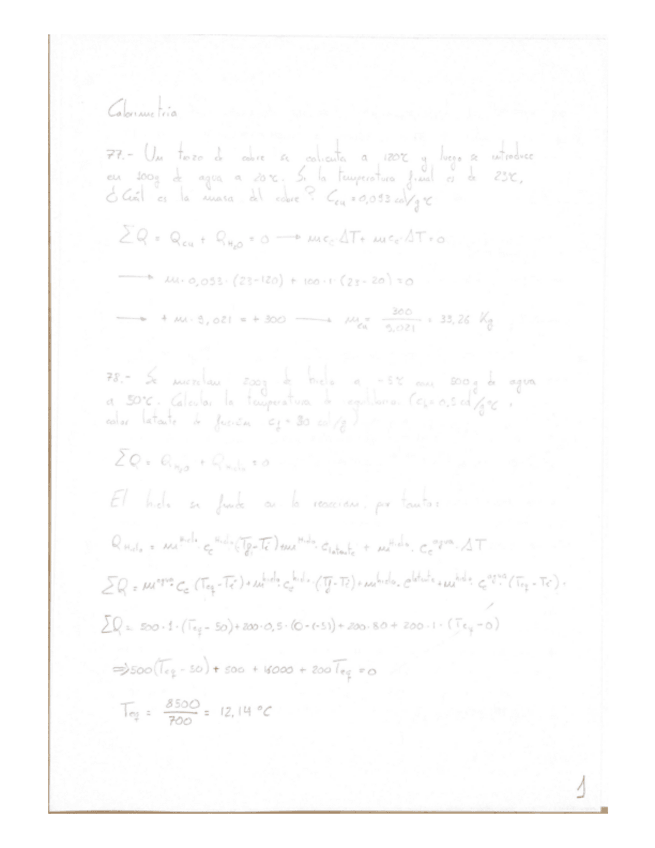 Calorimetría
77.- Un trozo de cobre se calienta a 120℃ y luego se introduce
en 100g de agua a 20℃. Si la temperatura final es de 23℃,
¿Cuál es la masa del cobre? Ccu = 0,093 cal/g℃
ΣQ = Qcu + QH₂O = 0 → m·ce·ΔT + m·ce·ΔT = 0
→ m·0,093·(23-120) + 100·1·(23-20) = 0
→ + m·9,021 = + 300 → mcu = 300/9,021 = 33,26 Kg
78.- Se mezclan 200g de hielo a -5℃ con 500g de agua
a 50℃. Calcular la temperatura de equilibrio (ce = 0,5 cal/g℃,
calor latente de fusión cf = 80 cal/g)
ΣQ = QH₂O + QHielo = 0
El hielo se funde en la reacción, por tanto:
QHielo = m^hielo·ce^hielo·(Tf-Ti) + m^hielo·Clatente + m^hielo·ce^agua·ΔT
ΣQ = m^agua·ce(Teq-Ti) + m^hielo·ce^hielo·(Tf-Ti) + m^hielo·c^latente + m^hielo·ce^agua·(Teq-Ti) =
ΣQ = 500·1·(Teq-50) + 200·0,5·(0-(-5)) + 200·80 + 200·1·(Teq-0)
⇒ 500(Teq-50) + 500 + 16000 + 200Teq = 0
Teq = 8500/700 = 12,14 °C
1